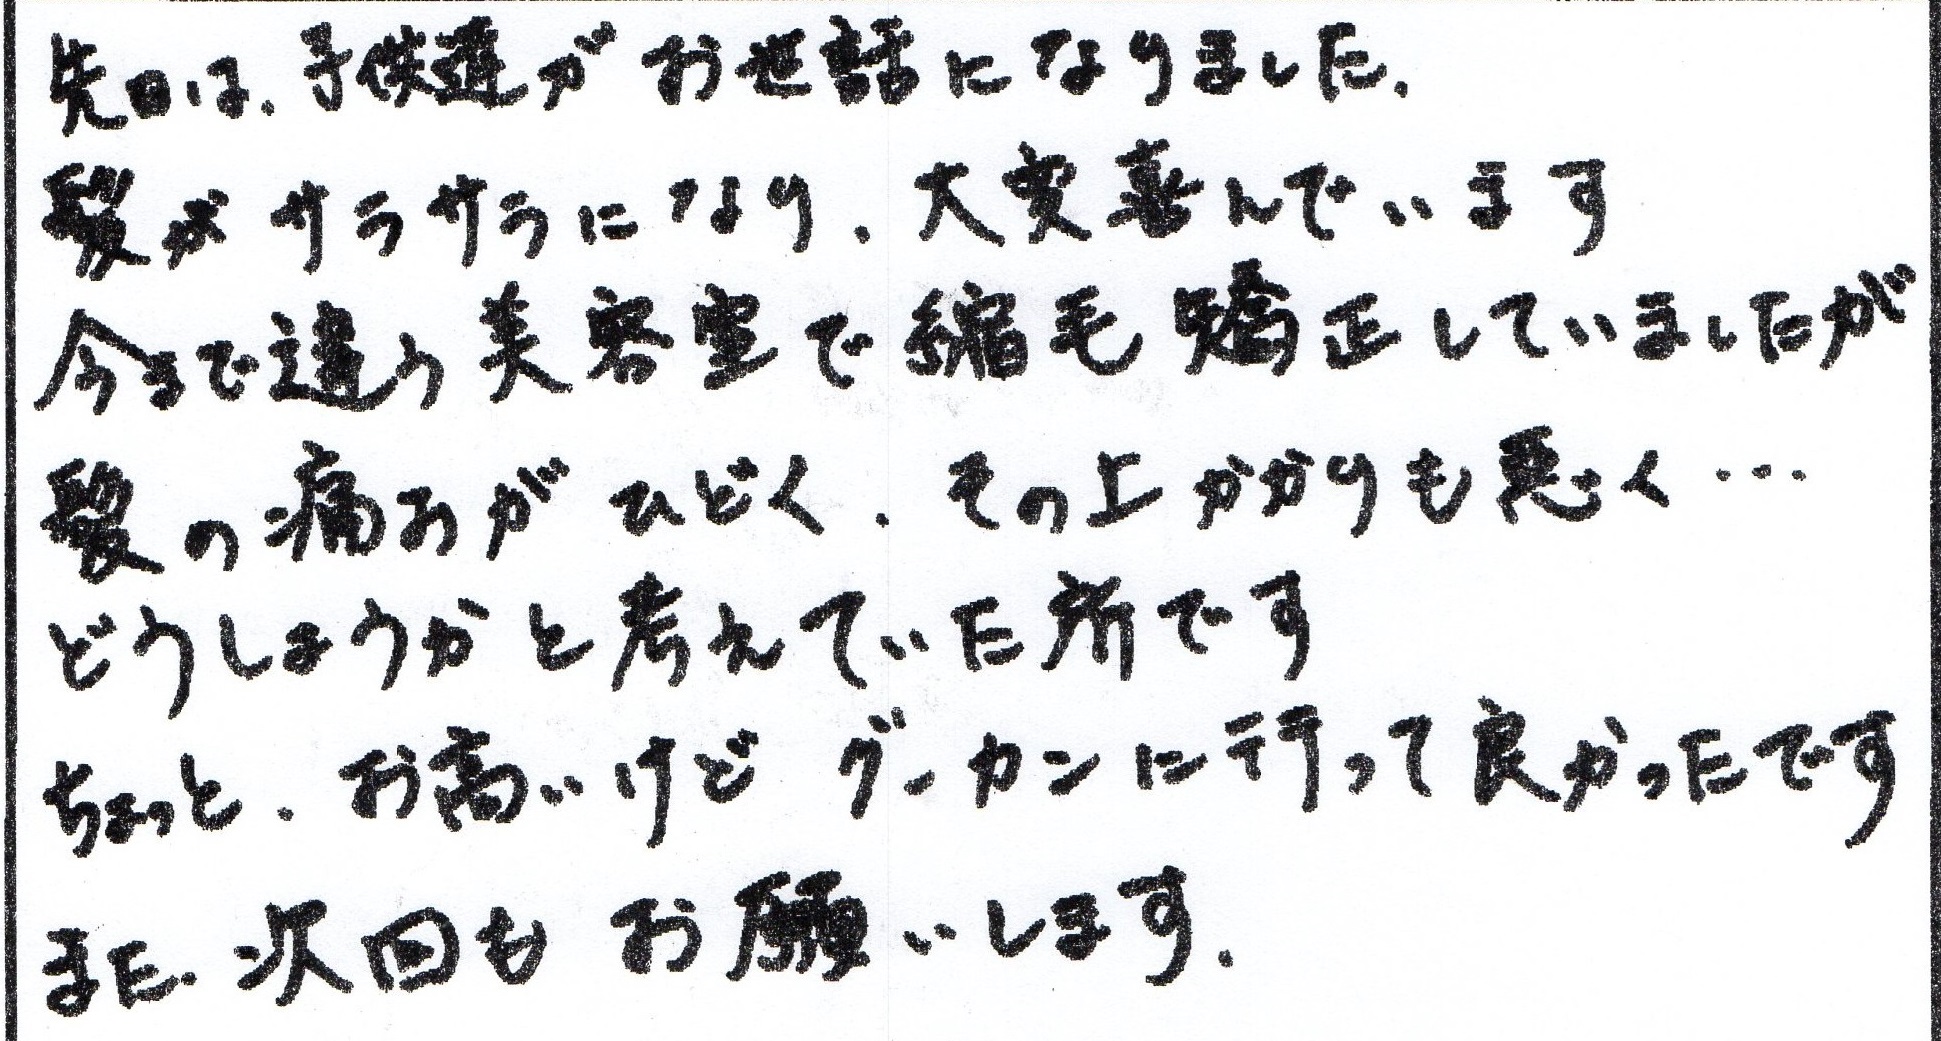 先日は、子供達がお世話になりました。
髪がサラサラになり、大変喜んでいます
今まで違う美容室で縮毛矯正していましたが
髪の痛みがひどく、その上かかりも悪く…
どうしようかと考えていた所です
ちょっと、お高いけどグーカンに行って良かったです
また、次回もお願いします。